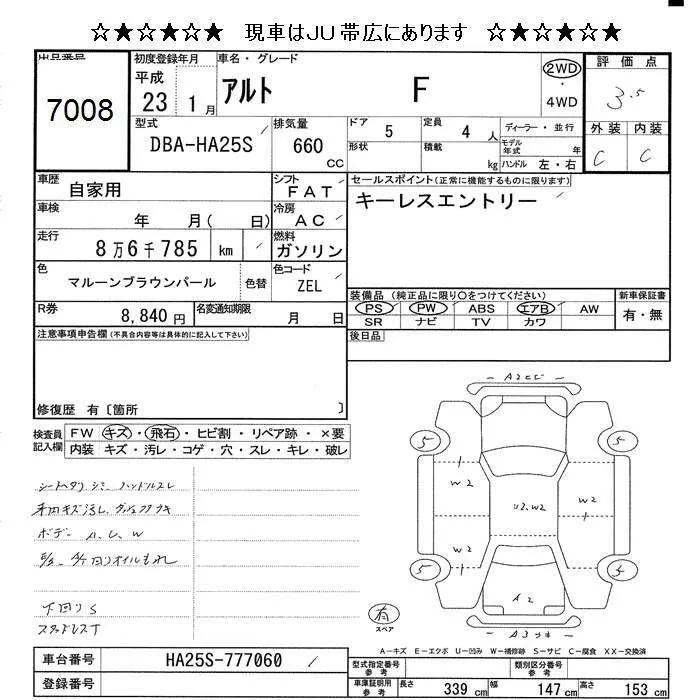 ☆★☆★☆★☆ 現車はJU帯広にあります ☆★☆★☆★☆
出品番号
7008
初度登録年月
平成
23 1月
車名・グレード
アルト F
2WD
・
4WD
評価点
3.5
外装 内装
C C
型式
DBA-HA25S
排気量
660
CC
ドア 5
定員 4 人
ディーラー・並行
形状
積載 kg
モデル年式 年
ハンドル 左・右
車歴
自家用
シフト
FAT
セールスポイント(正常に機能するものに限ります)
キーレスエントリー
車検
年 月( 日)
冷房
AC
走行
8万6千785 km
燃料
ガソリン
色
マルーンブラウンパール
色替
色コード
ZEL
装備品(純正品に限り○をつけてください)
新車保証書
PS PW ABS エアB AW
SR ナビ TV カワ
有・無
R券
8,840 円
名変通知期限
月 日
後日品
注意事項申告欄(不具合内容等は具体的に記入して下さい)
修復歴 有〔箇所 〕
検査員記入欄
FW キズ・飛石・ヒビ割・リペア跡・×要
内装 キズ・汚レ・コゲ・穴・スレ・キレ・破レ
シートヘタリ シミ ハンドルスレ
ボデー A、U、W
下回りS
スタッドレスT
5 5
W2
W2
U2、W2
W2
W2
5 5
A2
有
スペア
A3
A－キズ E－エクボ U－凹み W－補修跡 S－サビ C－腐食 XX－交換済
車台番号
HA25S-777060
登録番号
型式指定番号
参考
類別区分番号
参考
車庫証明用
参考
長さ 339 cm 幅 147 cm 高さ 153 cm